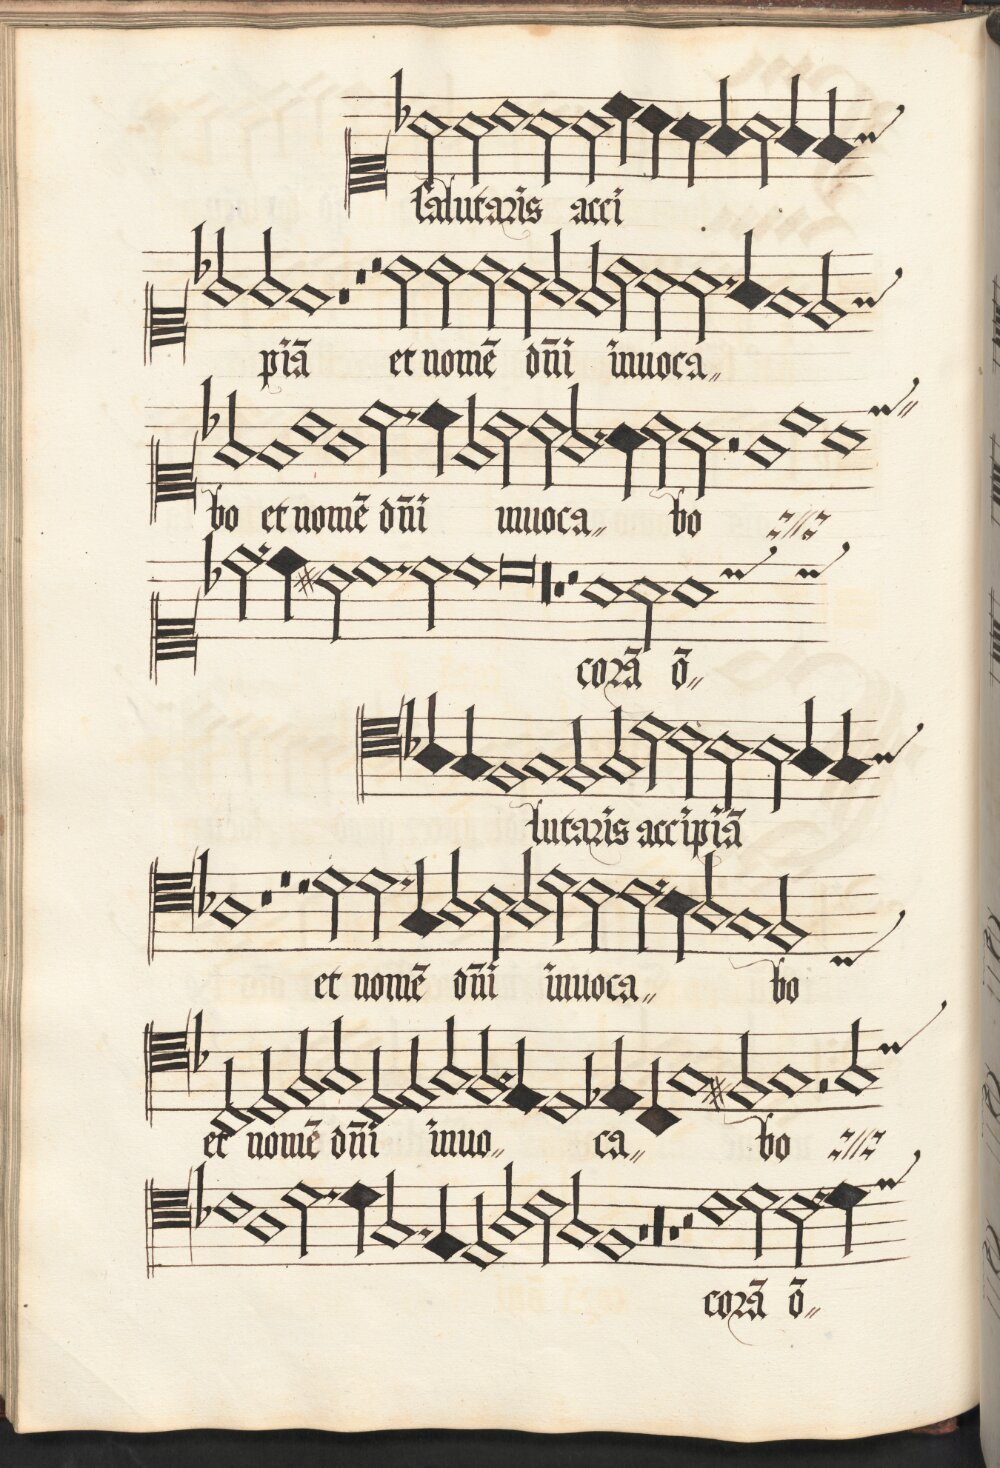 Salutaris acci
piā et nomē dn̄i inuoca„
bo et nomē dn̄i inuoca„ bo
corā ō„
lutaris accipiā
et nomē dn̄i inuoca„ bo
et nomē dn̄i inuo„ ca„ bo
corā ō„